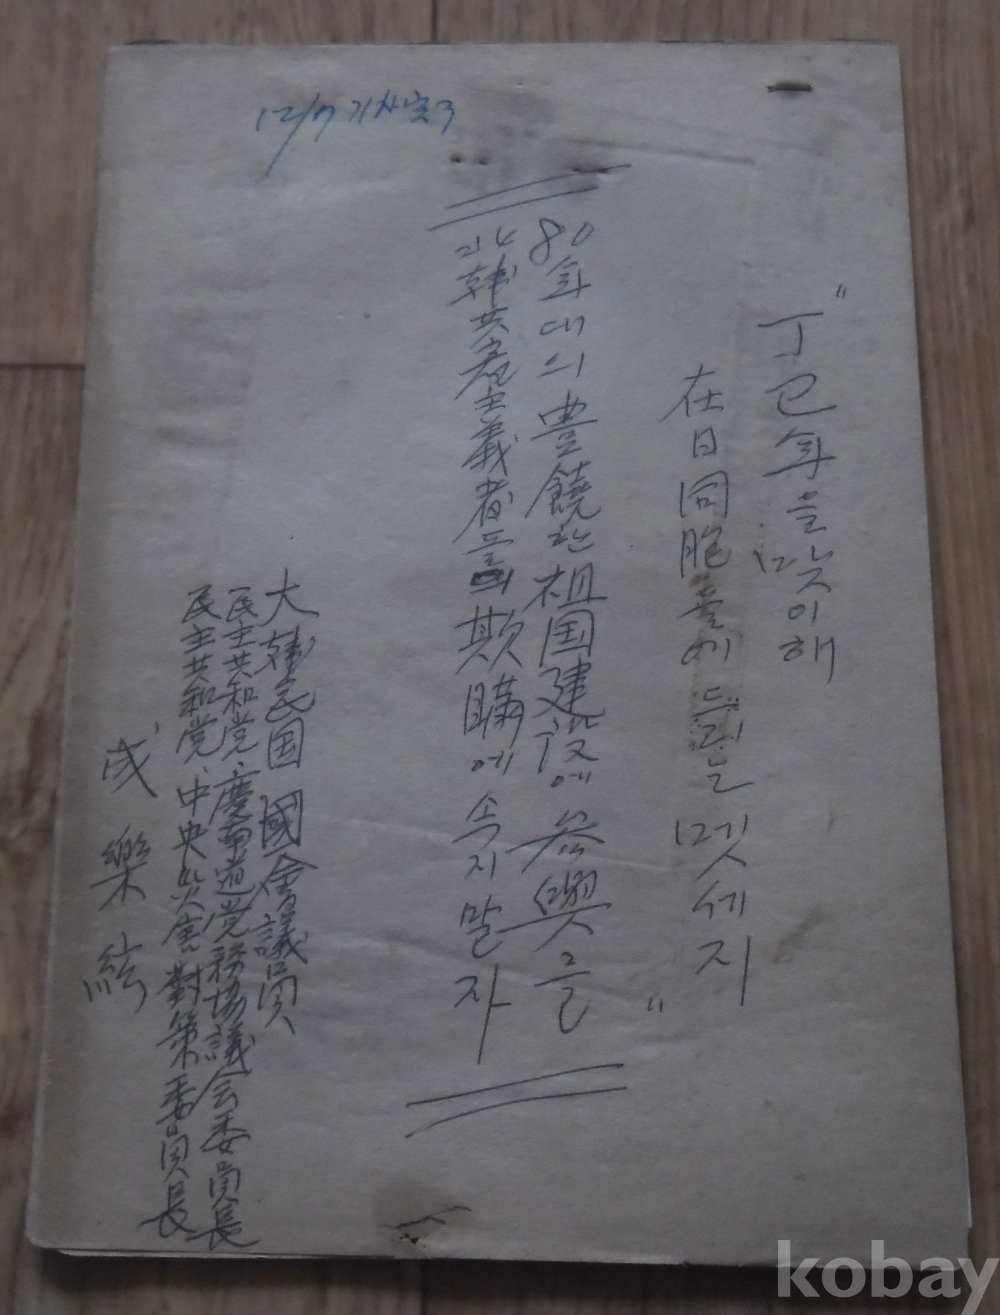 12/7
"丁巳年을 맞이해
在日同胞들에 드리는 멧세지"
80年대의 豊饒한 祖国建設에 参與를
北韓共産主義者들의 欺瞞에 속지말자
大韓民国 國會議員
民主共和党、慶南道党務協議会委員長
民主共和党、中央災害對策委員長
成 樂 絃
kobay